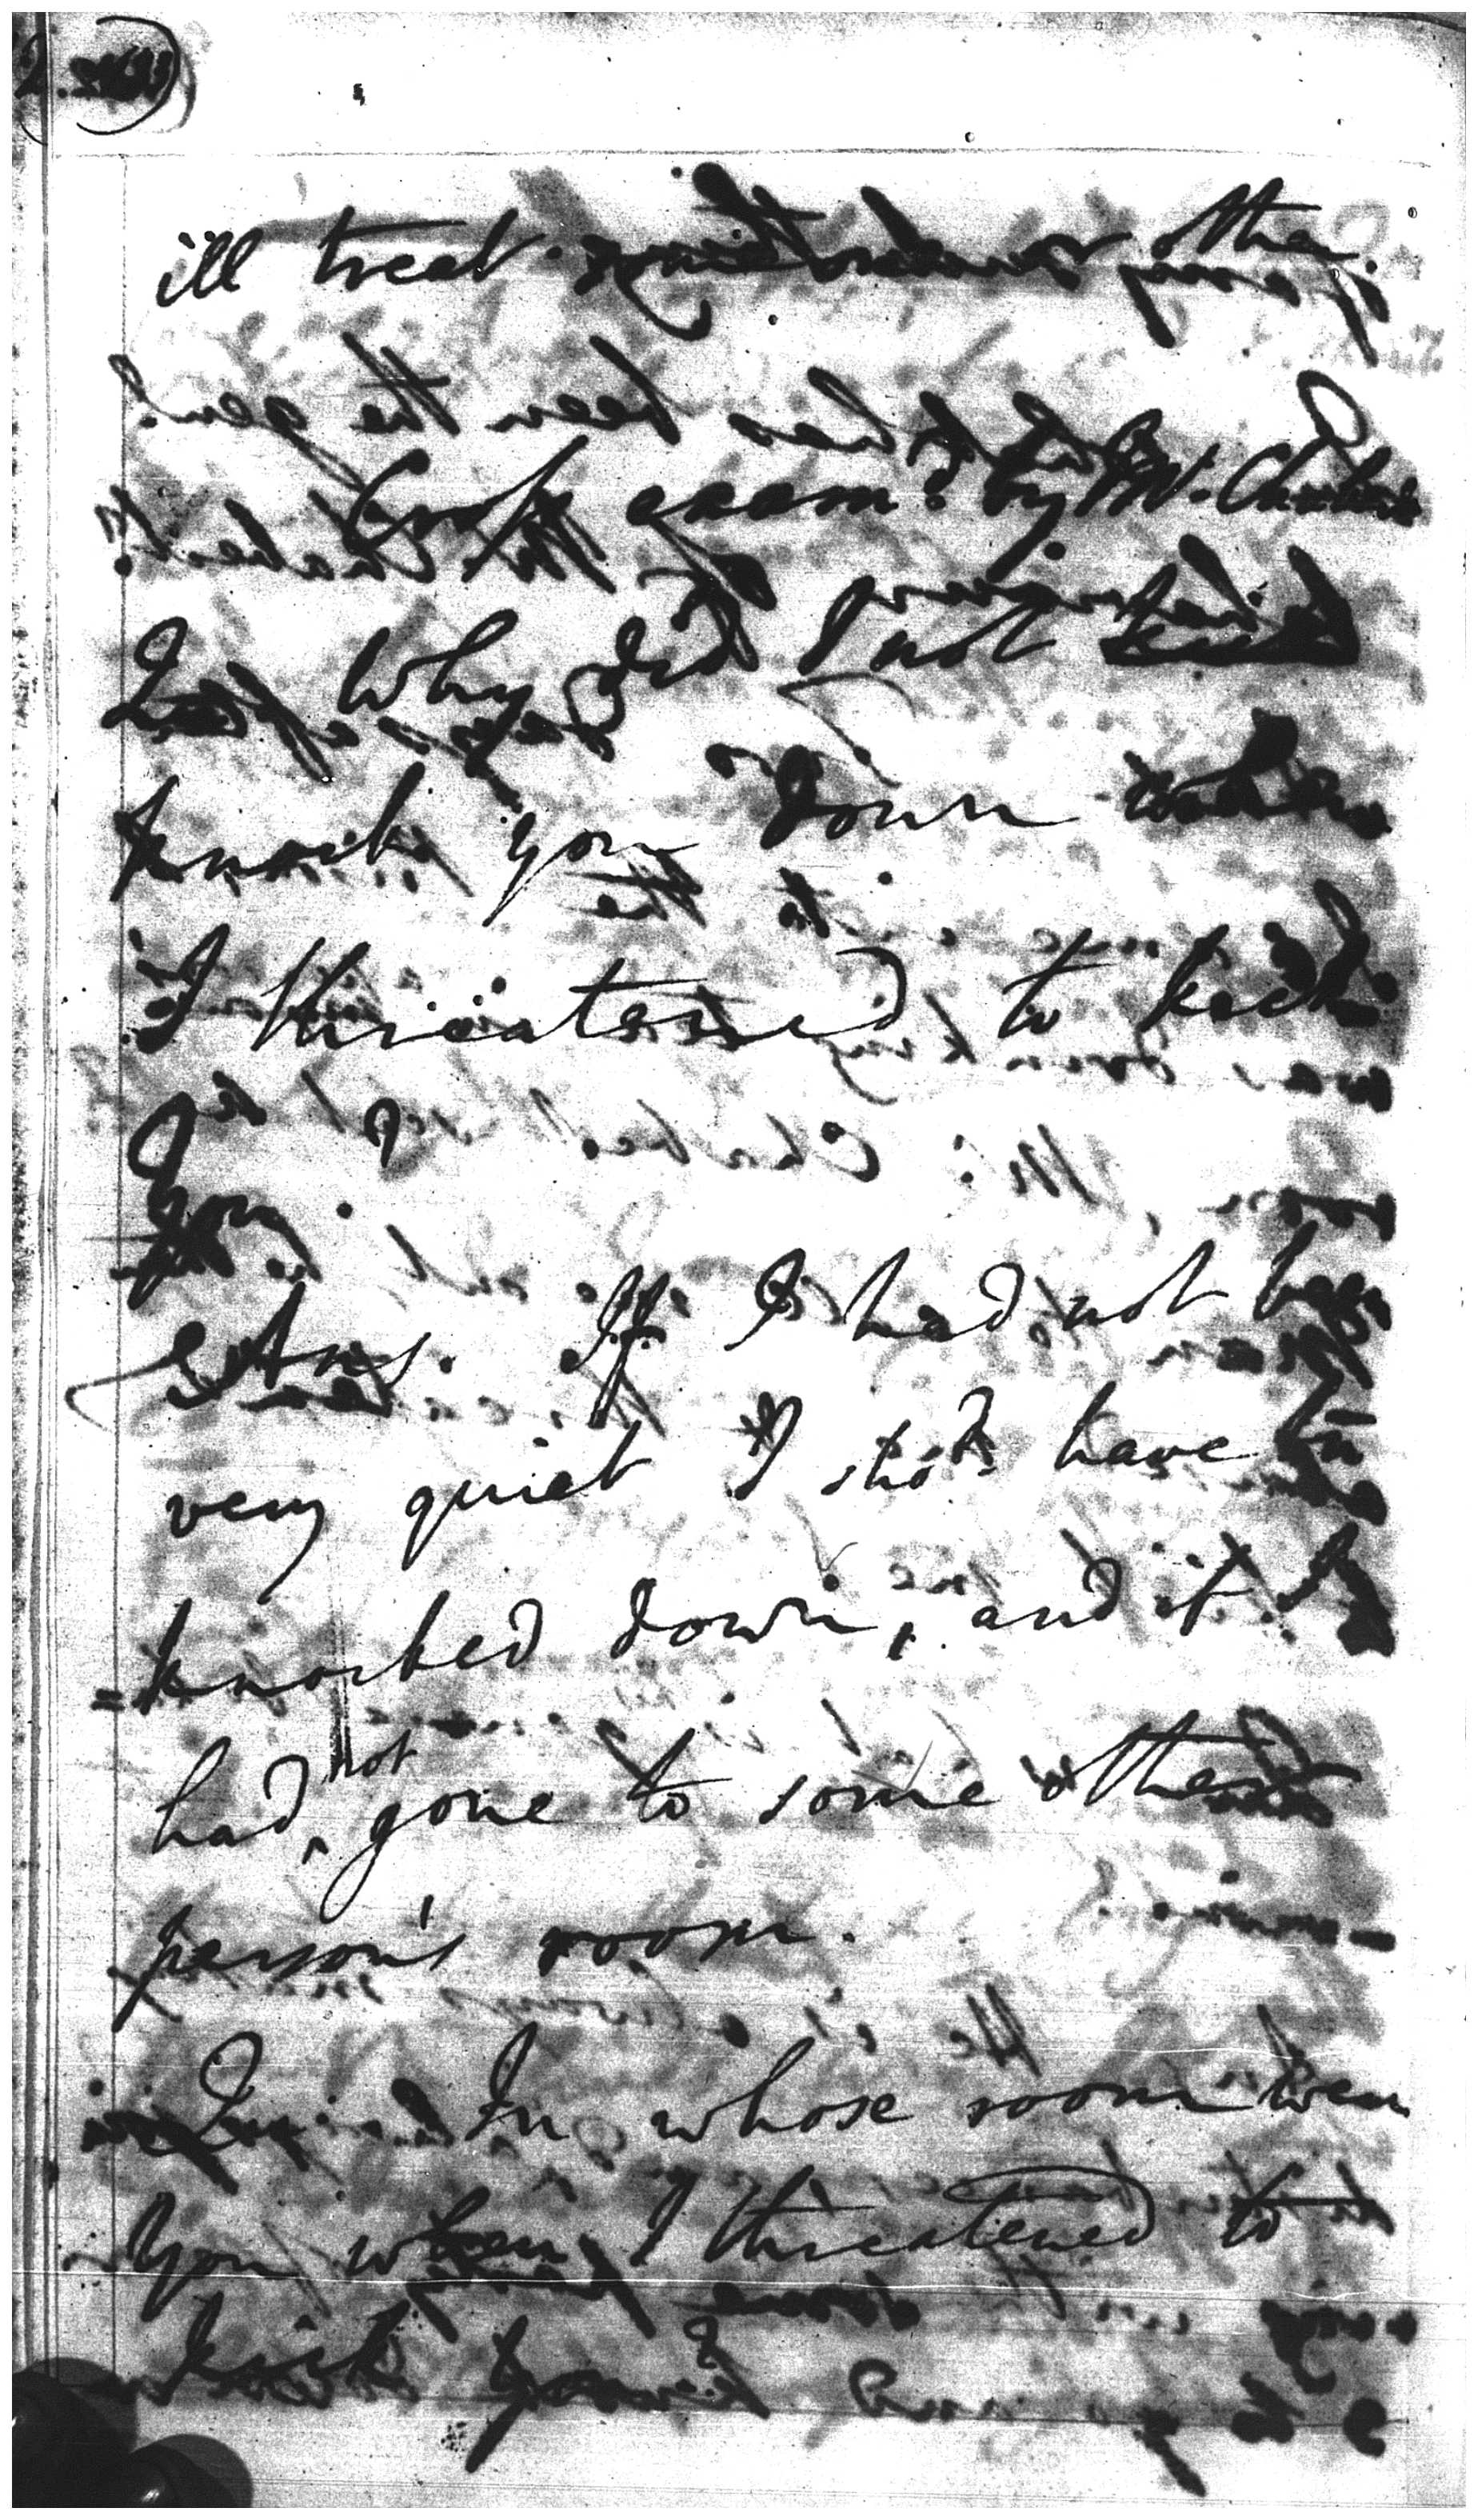 ill treat
Cook exam.d by Mr. Chabert
Qn. Why did I not
knock you down when
I threatened to kick
you?
Ans. If I had not been
very quiet I sho.d have been
knocked down, and if I
had ^not gone to some other
person's room.
Qn. In whose room were
you when I threatened to
kick you?